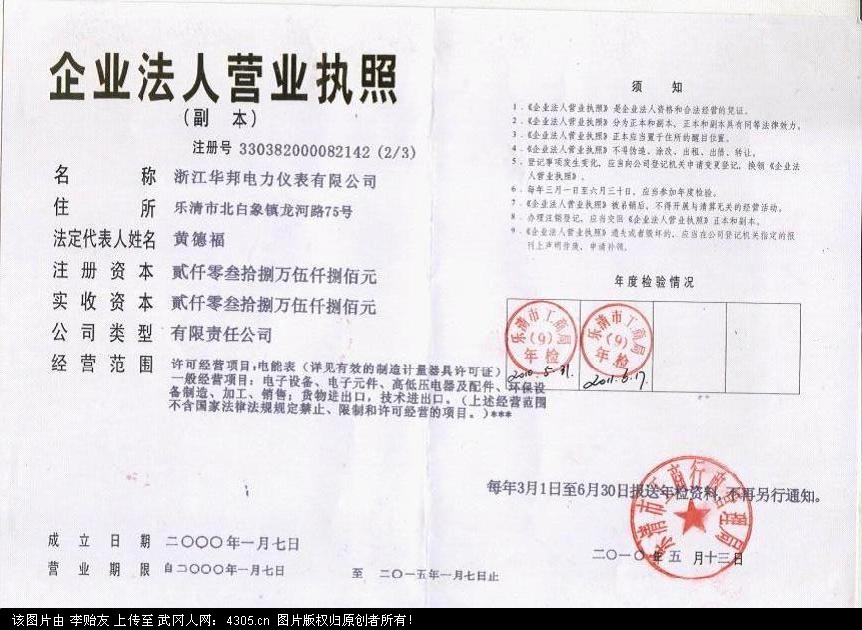 企业法人营业执照
（副 本）
注册号 330382000082142 (2/3)
名 称 浙江华邦电力仪表有限公司
住 所 乐清市北白象镇龙河路75号
法定代表人姓名 黄德福
注 册 资 本 贰仟零叁拾捌万伍仟捌佰元
实 收 资 本 贰仟零叁拾捌万伍仟捌佰元
公 司 类 型 有限责任公司
经 营 范 围 许可经营项目：电能表（详见有效的制造计量器具许可证）
一般经营项目：电子设备、电子元件、高低压电器及配件、环保设
备制造、加工、销售；货物进出口，技术进出口。（上述经营范围
不含国家法律法规规定禁止、限制和许可经营的项目。）***
成 立 日 期 二〇〇〇年一月七日
营 业 期 限 自二〇〇〇年一月七日 至 二〇一五年一月七日止
须 知
1．《企业法人营业执照》是企业法人资格和合法经营的凭证。
2．《企业法人营业执照》分为正本和副本，正本和副本具有同等法律效力。
3．《企业法人营业执照》正本应当置于住所的醒目位置。
4．《企业法人营业执照》不得伪造、涂改、出租、出借、转让。
5．登记事项发生变化，应当向公司登记机关申请变更登记，换领《企业法
人营业执照》。
6．每年三月一日至六月三十日，应当参加年度检验。
7．《企业法人营业执照》被吊销后，不得开展与清算无关的经营活动。
8．办理注销登记，应当交回《企业法人营业执照》正本和副本。
9．《企业法人营业执照》遗失或者毁坏的，应当在公司登记机关指定的报
刊上声明作废，申请补领。
年度检验情况
乐清市工商局
（9）
年 检
2010.5.31.
乐清市工商局
（9）
年 检
2011.6.17.
每年3月1日至6月30日报送年检资料，不再另行通知。
乐清市工商行政管理局
二〇一〇年 五 月十三日
该图片由 李贻友 上传至 武冈人网：4305.cn 图片版权归原创者所有！